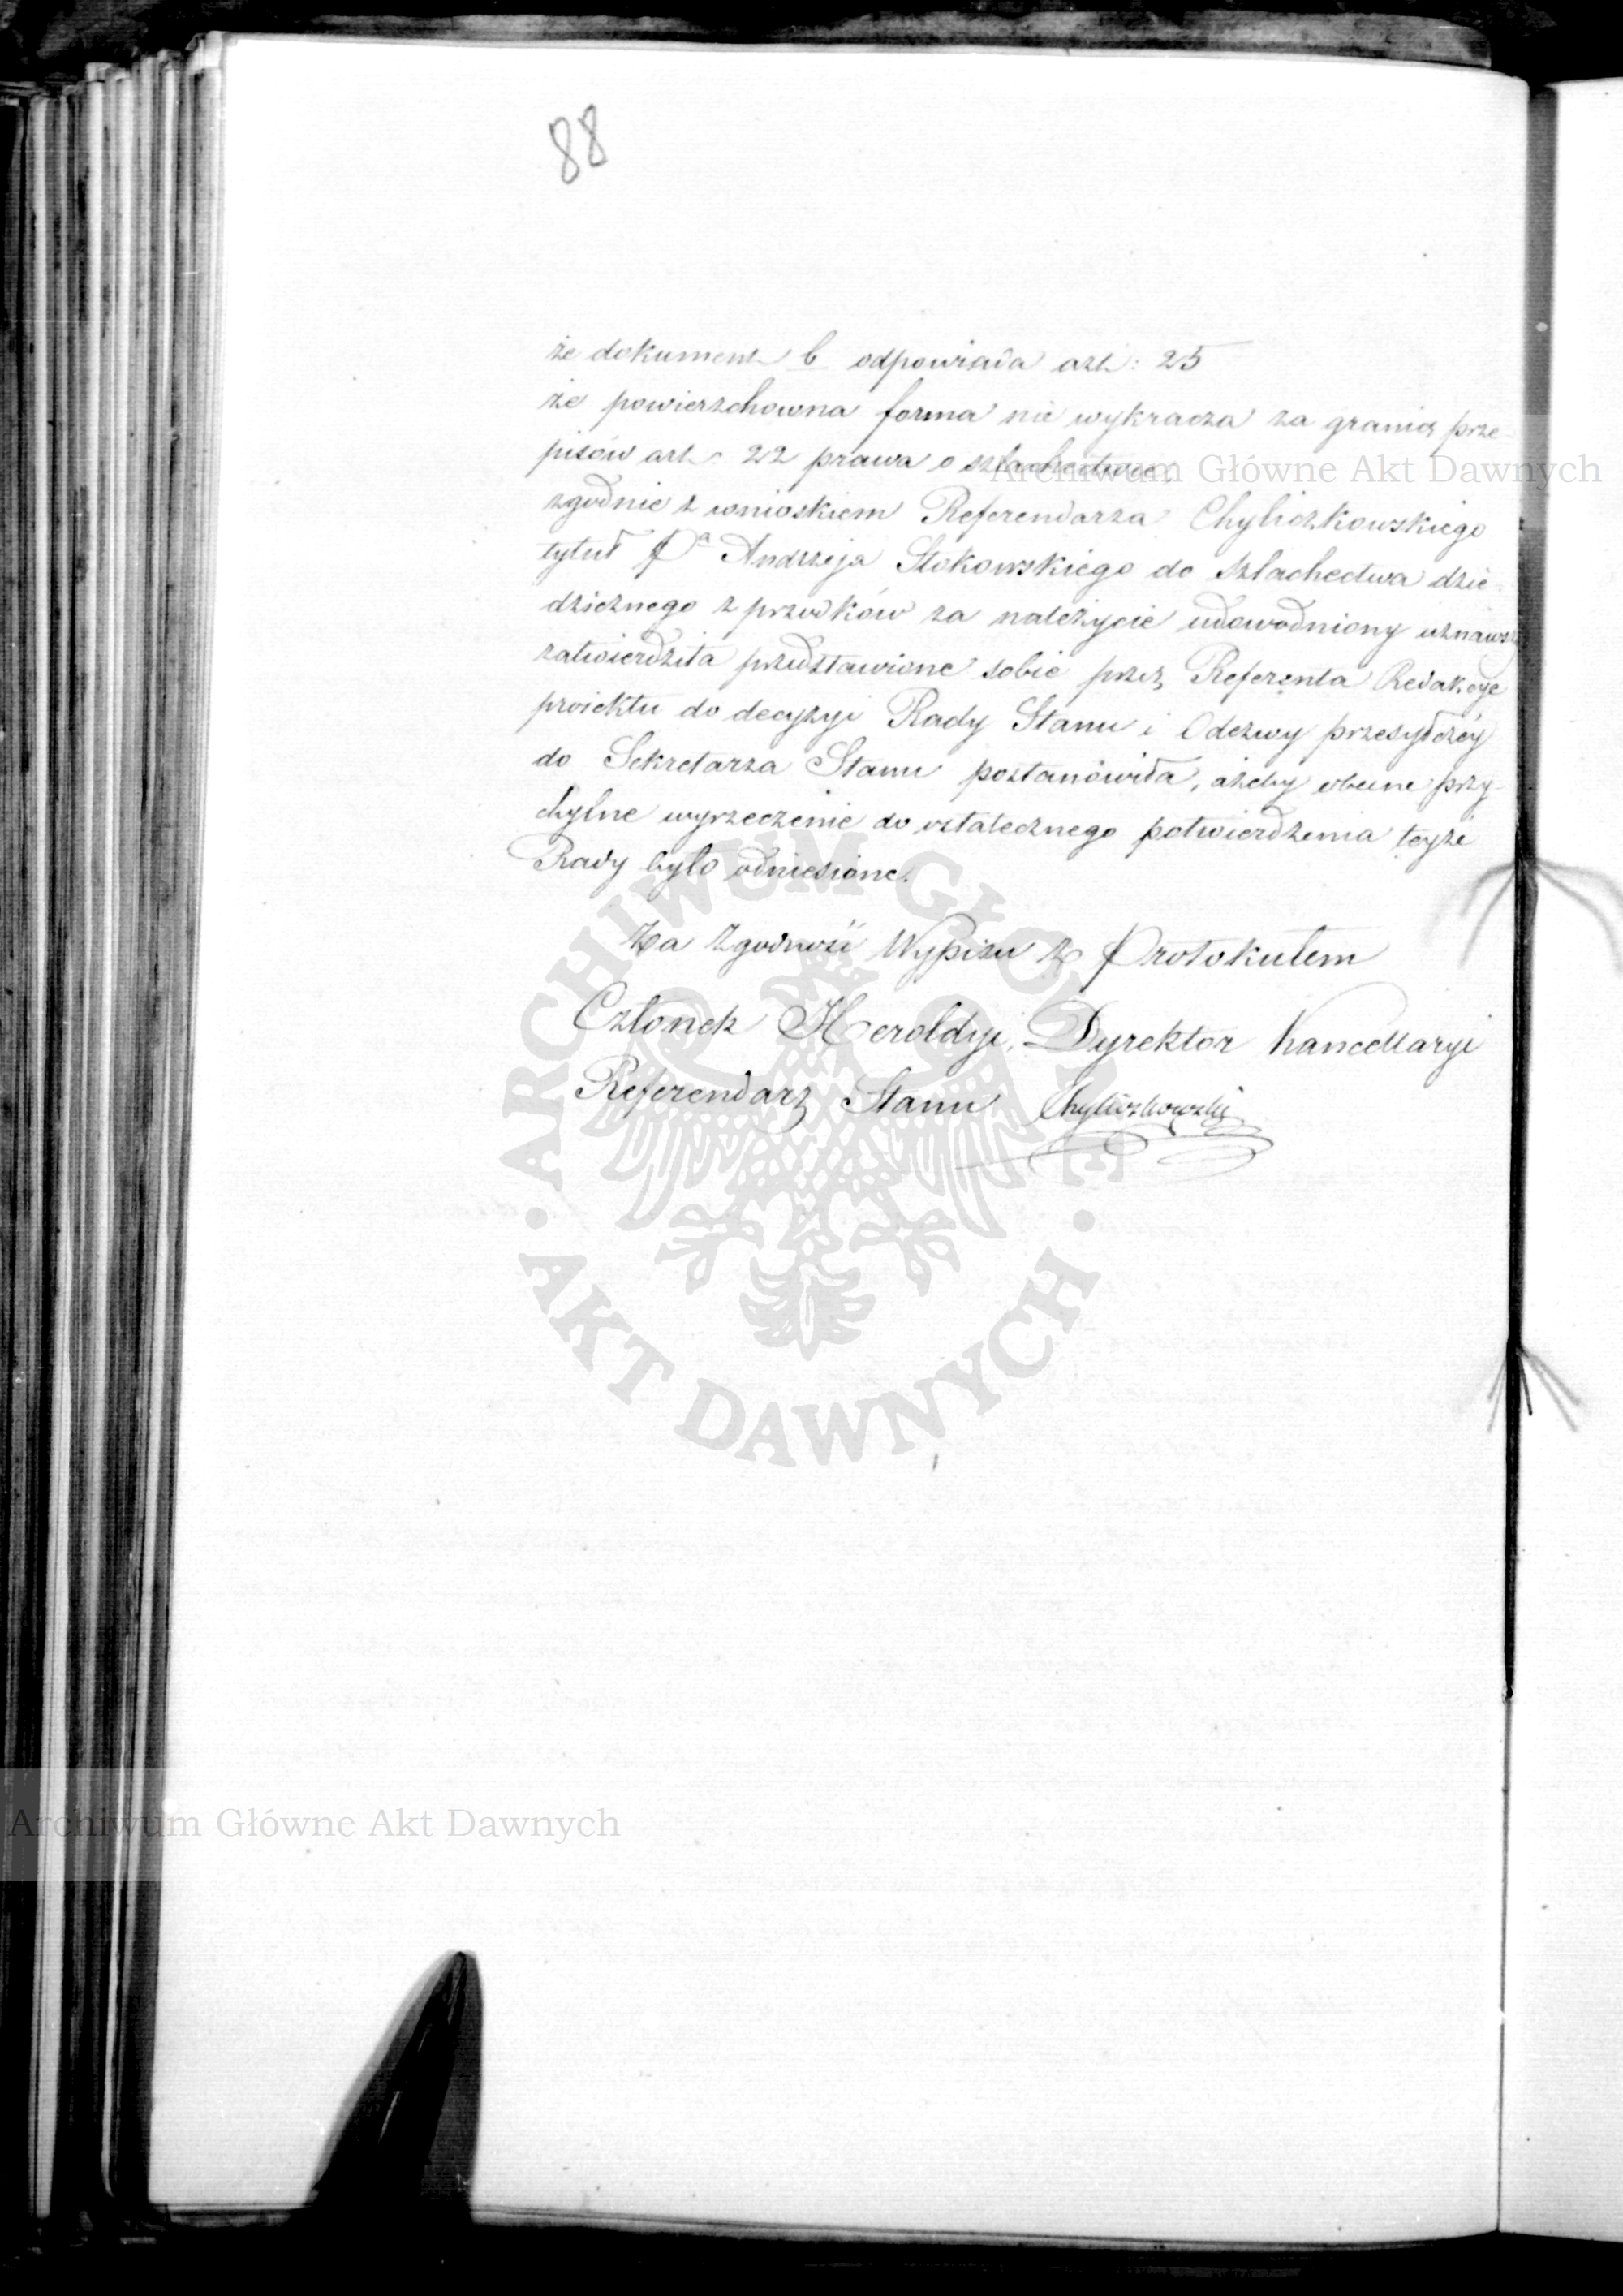 88
że dokument b odpowiada art: 25
że powierzchowna forma nie wykracza za granicę prze-
pisów art: 22 prawa o szlachectwie,
Archiwum Główne Akt Dawnych
zgodnie z wnioskiem Referendarza Chyliczkowskiego
tytuł Pa Andrzeja Stokowskiego do szlachectwa dzie-
dzicznego z przodków za należycie udowodniony uznawszy
zatwierdziła przedstawione sobie przez Referenta Redakcye
proiektu do decyzyi Rady Stanu i Odezwy przesyłczéy
do Sekretarza Stanu postanowiła, ażeby obecne przy-
chylne wyrzeczenie do ostatecznego potwierdzenia teyże
Rady było odniesione.
Za Zgodność Wypisu z Protokułem
Członek Heroldyi, Dyrektor Kancellaryi
Referendarz Stanu Chyliczkowski
ARCHIWUM GŁÓWNE
AKT DAWNYCH
Archiwum Główne Akt Dawnych